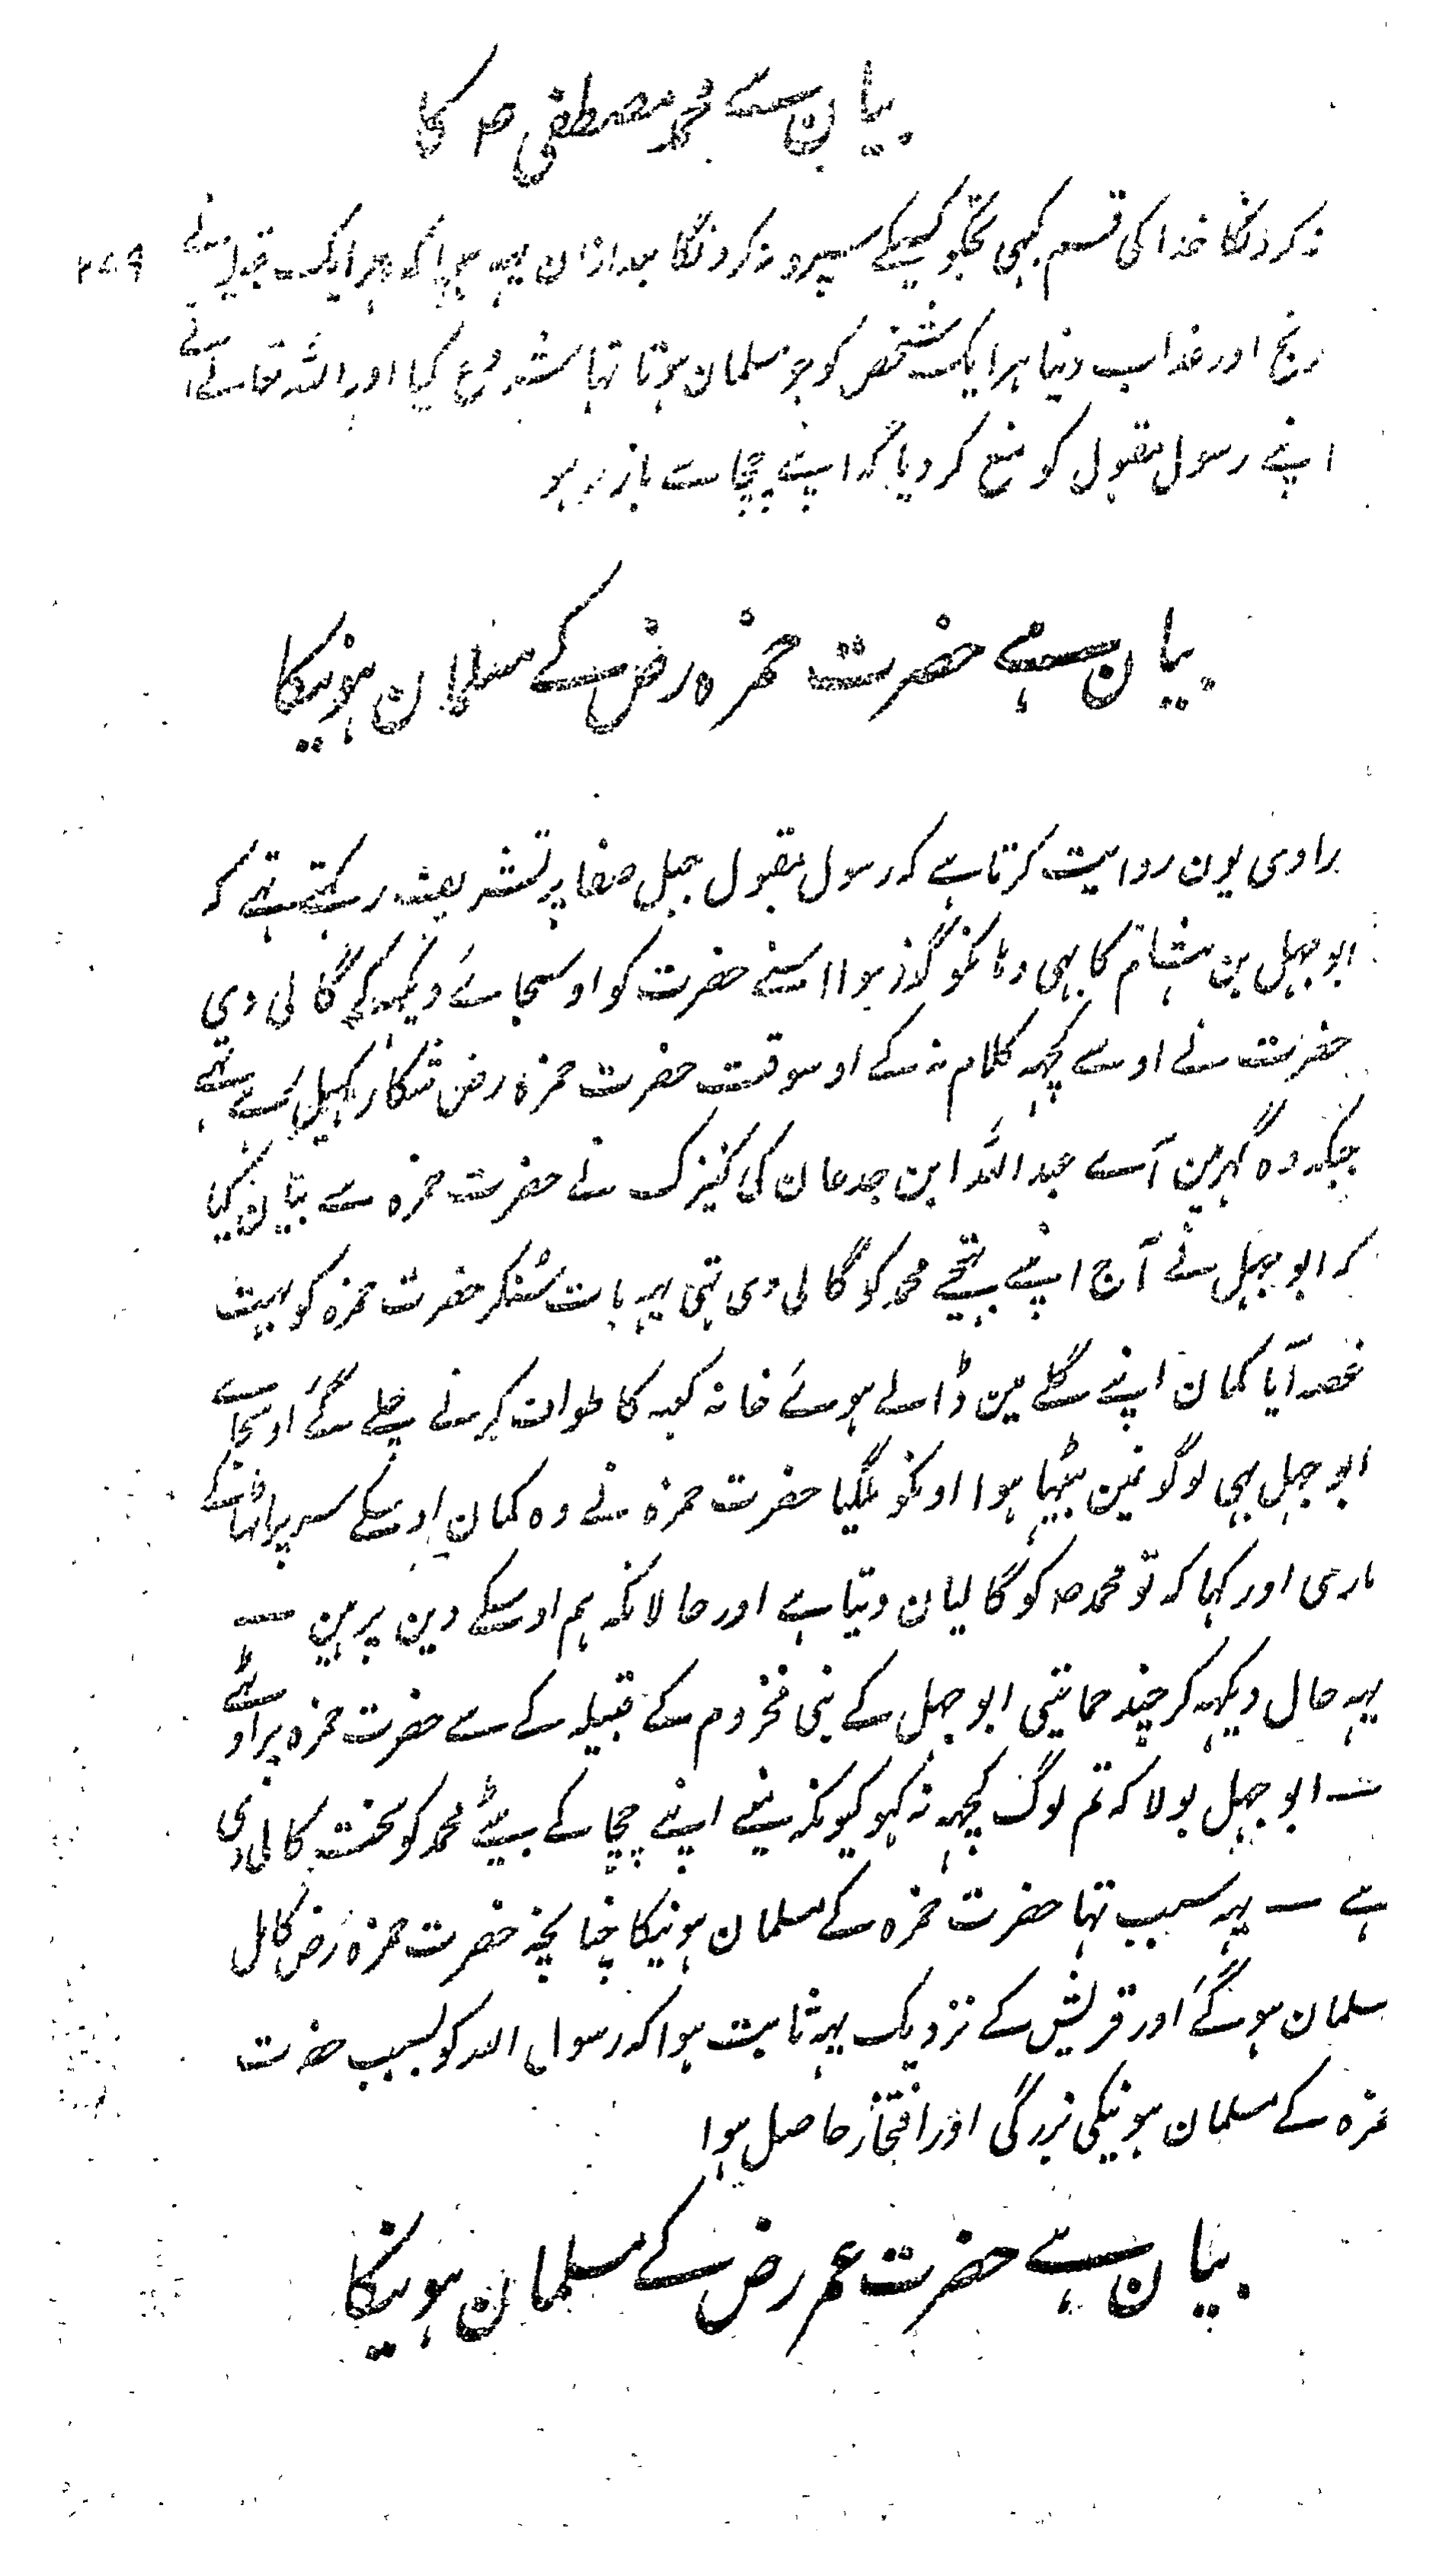 بیان ہے محمد مصطفی ص کا
نہ کرونگا خدا کی قسم کبہی تجکو کسیکے سپرد نہ کرونگا بعد ازان یہہ ہوا کہ ہر ایک قبیلہ نے
۲۷۹
رنج اور عذاب دنیا ہر ایک شخص کو جو مسلمان ہوتا تہا شروع کیا اور اللہ تعالے نے
اپنے رسول مقبول کو منع کر دیا کہ اپنے چچا سے باز رہو
بیان ہے حضرت حمزہ رض کے مسلمان ہونیکا
راوی یون روایت کرتا ہے کہ رسول مقبول جبل صفا پر تشریف رکہتے تہے کہ
ابوجہل بن ہشام کا بہی وہانکو گذر ہوا اسنے حضرت کو اوسجائے دیکہہ کے گالی دی
حضرت نے اوسے کچہہ کلام نہ کے اوسوقت حضرت حمزہ رض شکار کہیل رہے تہے
جبکہ وہ گہرمین آے عبد اللہ ابن جدعان کی کنیزک نے حضرت حمزہ سے بیان کیا
کہ ابوجہل نے آج اپنے بہتیجے محمد کو گالی دی تہی یہہ بات سُنکر حضرت حمزہ کو بہت
غصہ آیا کمان اپنے گلے مین ڈالے ہوئے خانہ کعبہ کا طواف کرنے چلے گئے اوسجا سے
ابوجہل بہی لوگونمین بیٹہا ہوا اونکو ملگیا حضرت حمزہ نے وہ کمان اوسکے سر پر اٹہا کے
ماری اور کہا کہ تو محمد ص کو گالیان دیتا ہے اور حالانکہ ہم اوسکے دین پر ہین ــ
یہہ حال دیکہہ کر چند حمایتی ابوجہل کے بنی مخزوم کے قبیلہ کے سے حضرت حمزہ پر اوٹہے
ــ ابوجہل بولا کہ تم لوگ کچہہ نہ کہو کیونکہ مینے اپنے چچا کے بیٹے محمد کو سخت گالی دی
ہے ــ یہہ سبب تہا حضرت حمزہ کے مسلمان ہونیکا چنانچہ حضرت حمزہ رض کامل
مسلمان ہوگئے اور قریش کے نزدیک یہہ ثابت ہوا کہ رسول اللہ کو بسبب حضرت
حمزہ کے مسلمان ہونیکی بزرگی اور افتخار حاصل ہوا
بیان ہے حضرت عمر رض کے مسلمان ہونیکا